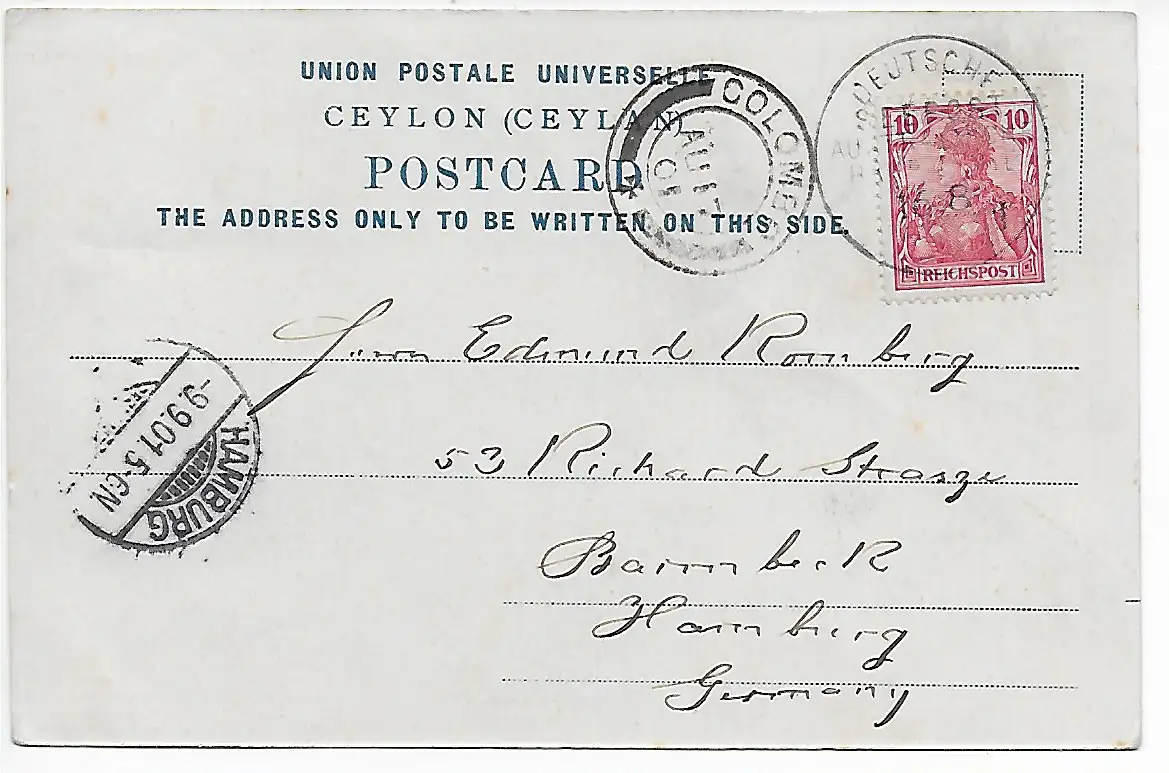 UNION POSTALE UNIVERSELLE
CEYLON (CEYLAN)
POSTCARD
THE ADDRESS ONLY TO BE WRITTEN ON THIS SIDE.
COLOMB
AU 17
01
DEUTSCHE
10 10
REICHSPOST
Edmund Romberg
53 Richard Strasze
Barmbeck
Hamburg
Germany
HAMBURG
-9.9.01.5-6N